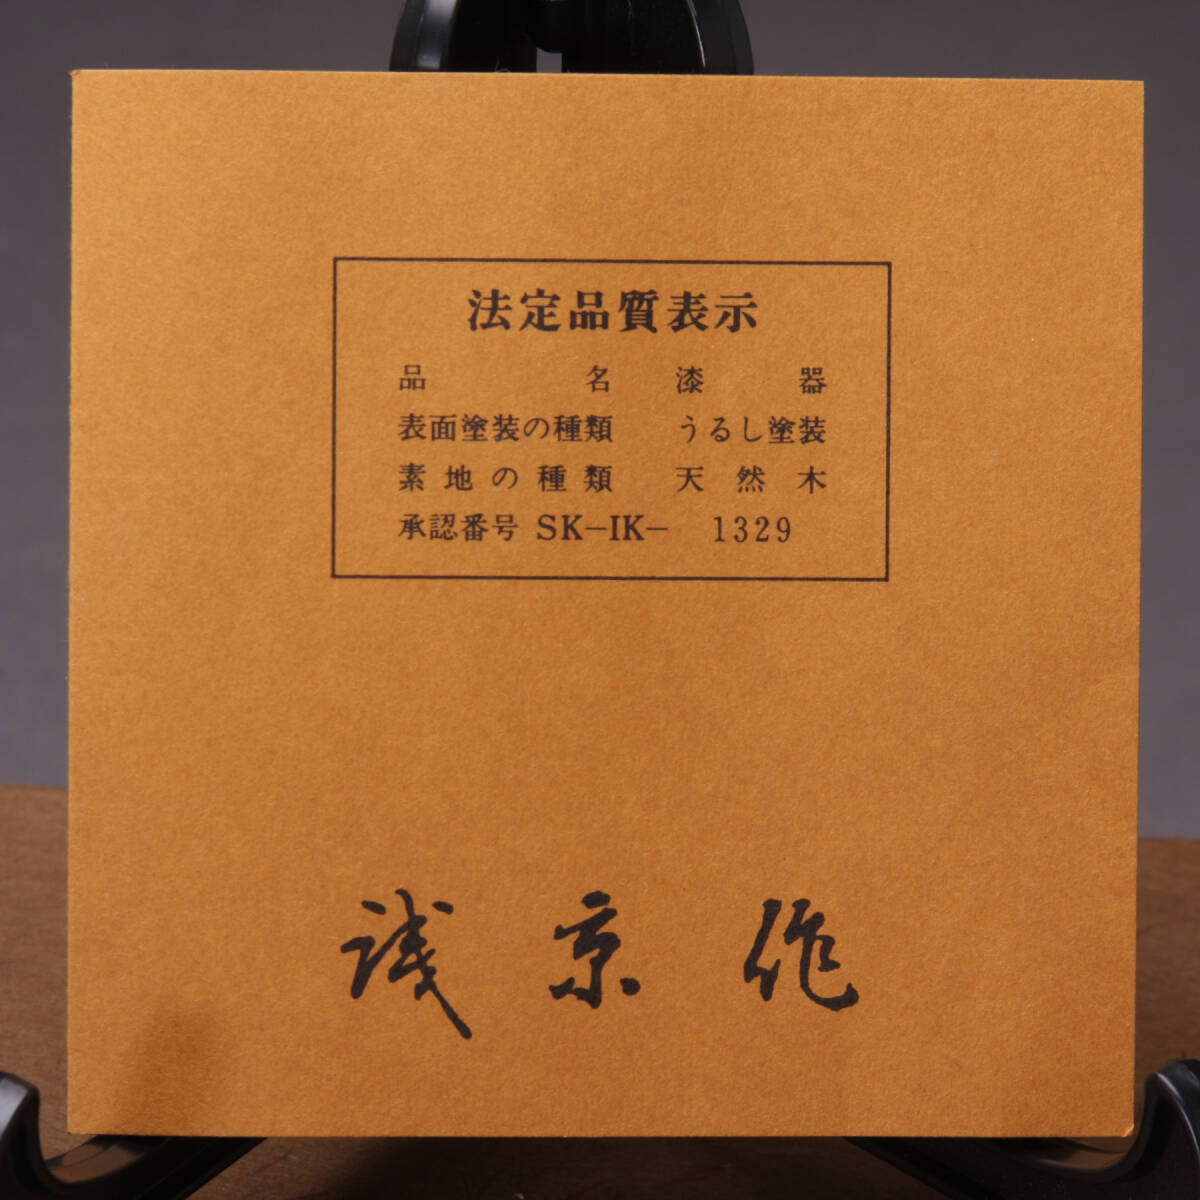 法定品質表示
品名 漆器
表面塗装の種類 うるし塗装
素地の種類 天然木
承認番号 SK-IK- 1329
浅京作